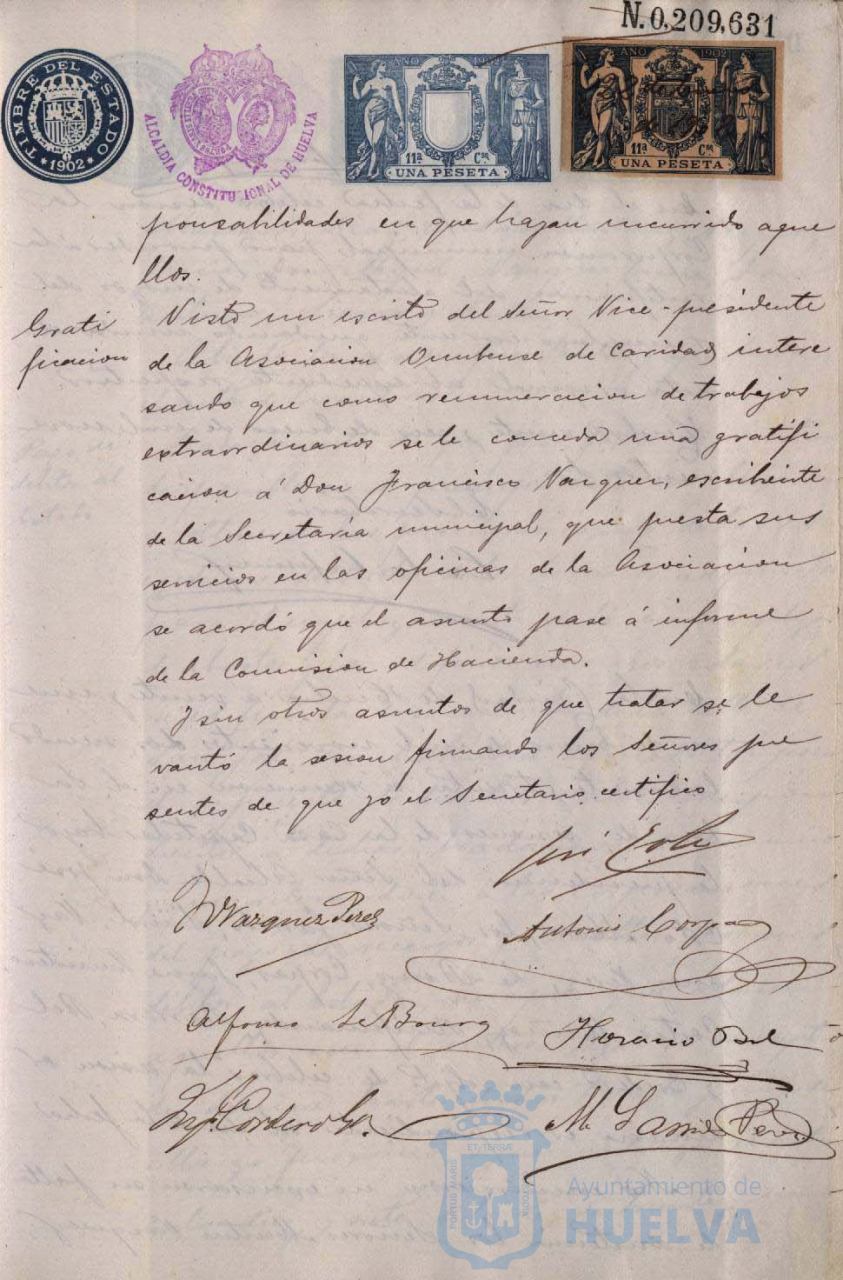 N.0,209,631
TIMBRE DEL ESTADO
1902
ALCALDIA CONSTITUCIONAL DE HUELVA
AÑO 1902
11ª Cse
UNA PESETA
AÑO 1902
11ª Cse
UNA PESETA
ponsabilidades en que hayan incurrido aque
llos.
Grati
ficacion
Visto un escrito del Señor Vice-presidente
de la Asociacion Onubense de Caridad, intere
sando que como remuneracion de trabajos
extraordinarios se le conceda una gratifi
cacion á Don Francisco Vazquez, escribiente
de la Secretaría municipal, que presta sus
servicios en las oficinas de la Asociacion
se acordó que el asunto pase á informe
de la Comision de Hacienda.
Y sin otros asuntos de que tratar se le
vantó la sesion firmando los Señores pre
sentes de que yo el Secretario certifico
José
Vazquez Perez
Antonio Corpa
Alfonso Le Bourg
Horacio Bel
Cordero
M. Perez
PORTUS MARIS ET TERRAE CUSTODIA
Ayuntamiento de
HUELVA